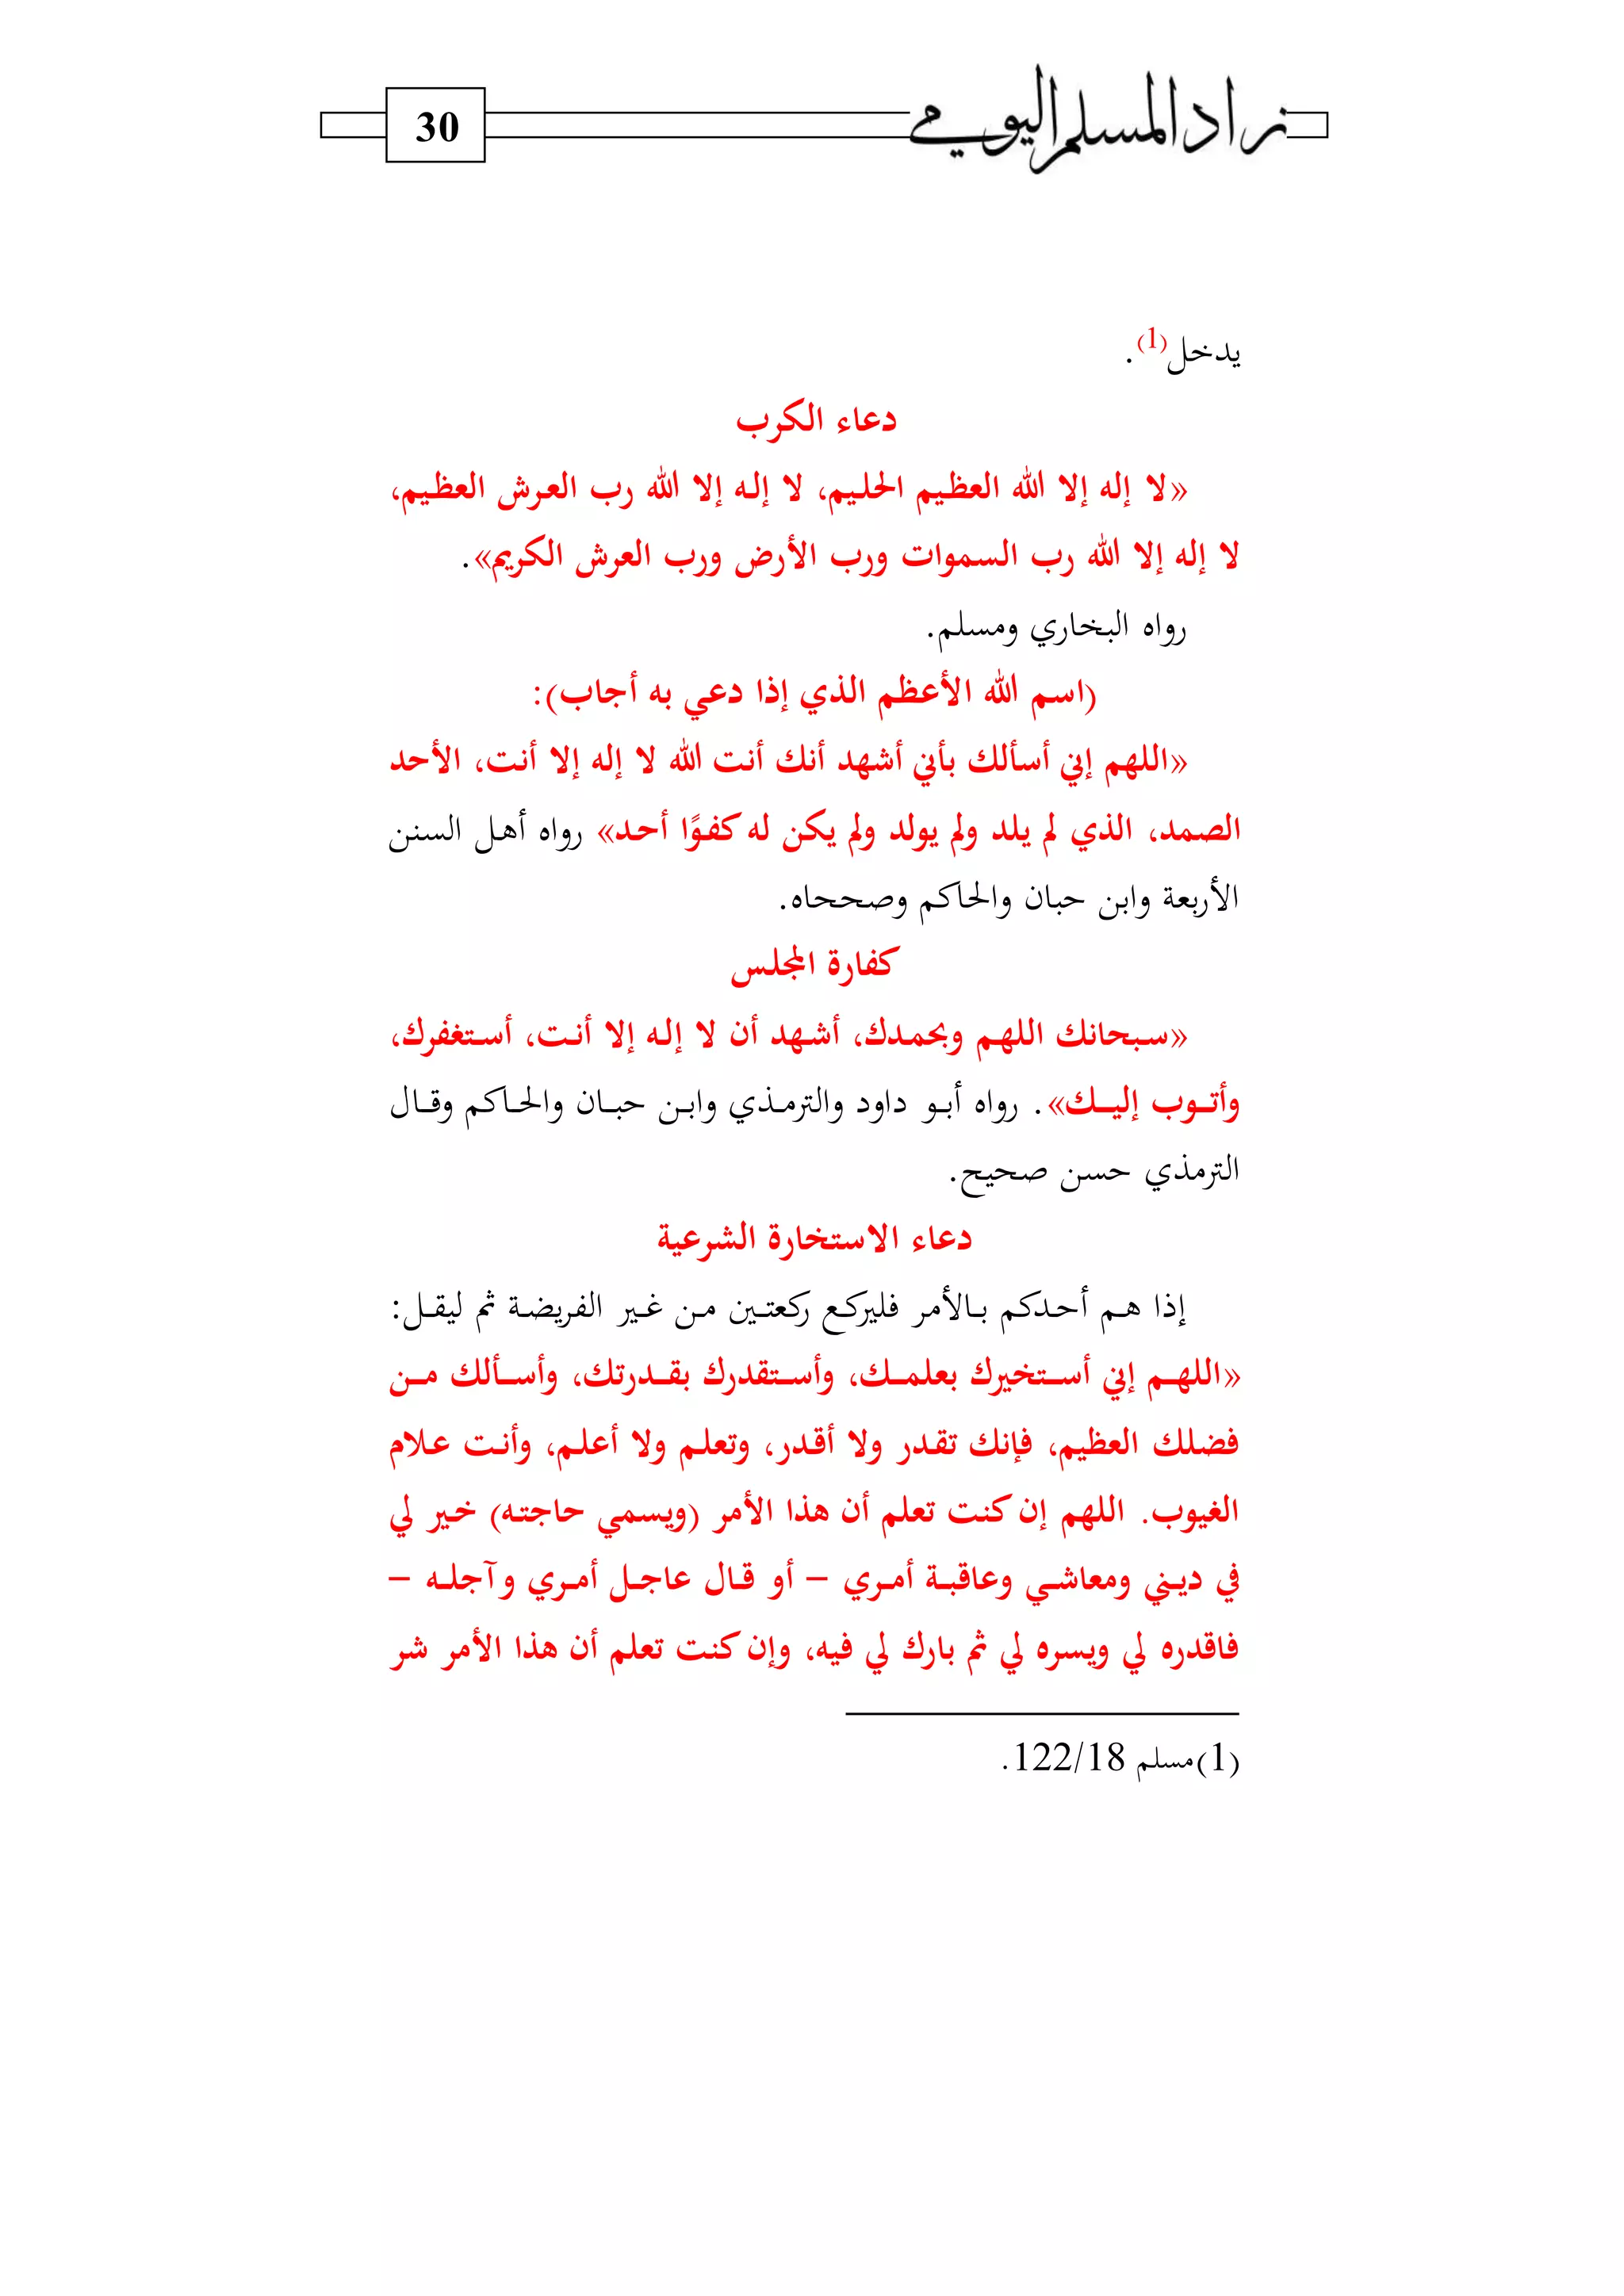 زاد المسلم اليومي
30
يدخل(1).
دعاء الكرب
«لا إله إلا الله العظيم الحليم، لا إله إلا الله رب العرش العظيم،
لا إله إلا الله رب السموات ورب الأرض ورب العرش الكريم».
رواه البخاري ومسلم.
(اسم الله الأعظم الذي إذا دعي به أجاب):
«اللهم إني أسألك بأني أشهد أنك أنت الله لا إله إلا أنت، الأحد
الصمد، الذي لم يلد ولم يولد ولم يكن له كفوًا أحد» رواه أهل السنن
الأربعة وابن حبان والحاكم وصححاه.
كفارة المجلس
«سبحانك اللهم وبحمدك، أشهد أن لا إله إلا أنت، أستغفرك،
وأتوب إليك». رواه أبو داود والترمذي وابن حبان والحاكم وقال
الترمذي حسن صحيح.
دعاء الاستخارة الشرعية
إذا هم أحدكم بالأمر فليركع ركعتين من غير الفريضة ثم ليقل:
«اللهم إني أستخيرك بعلمك، وأستقدرك بقدرتك، وأسألك من
فضلك العظيم، فإنك تقدر ولا أقدر، وتعلم ولا أعلم، وأنت علام
الغيوب. اللهم إن كنت تعلم أن هذا الأمر (ويسمي حاجته) خير لي
في ديني ومعاشي وعاقبة أمري – أو قال عاجل أمري وآجله –
فاقدره لي ويسره لي ثم بارك لي فيه، وإن كنت تعلم أن هذا الأمر شر
(1)مسلم 122/18.